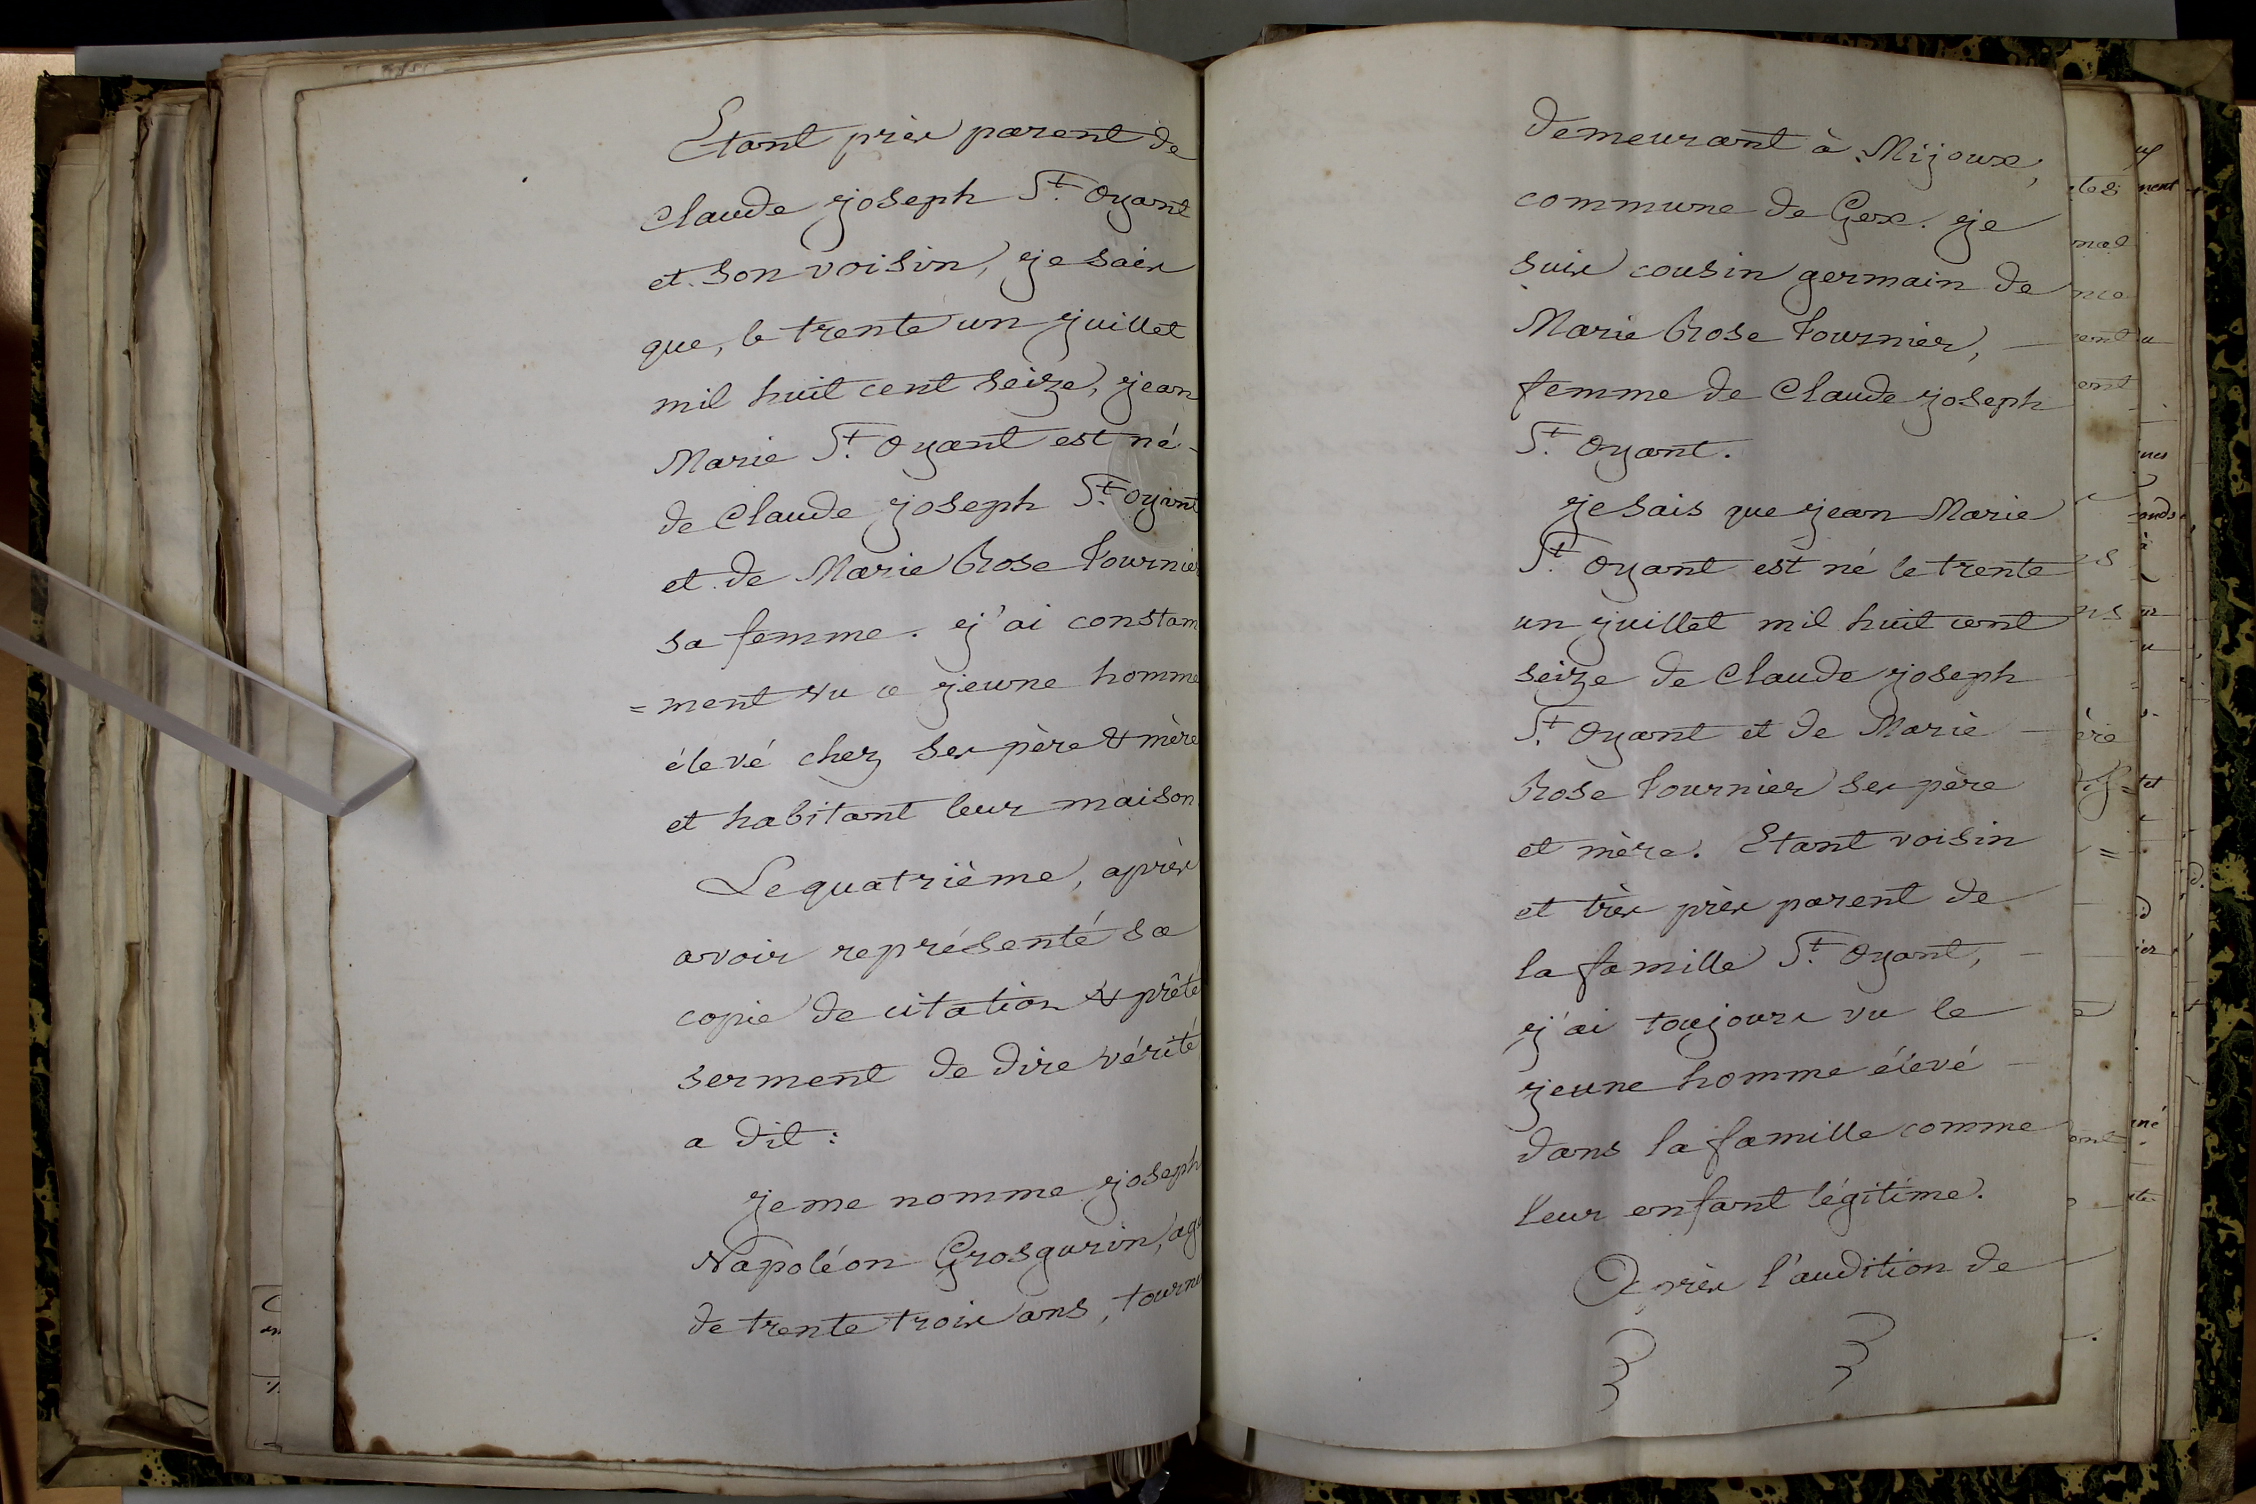 Etant près parent de
Claude joseph St. Oyant
et son voisin, je sais
que, le trente un juillet
mil huit cent seize, jean
Marie St. Oyant est né
de Claude joseph St. Oyant
et de Marie Rose Fournier
sa femme. j'ai constam
= ment vu ce jeune homme
élevé chez ses père & mère
et habitant leur maison
Le quatrième, après
avoir représenté sa
copie de citation & prêté
serment de dire vérité
a dit :
je me nomme joseph
Napoléon Grosgurin, agé
de trente trois ans, tourne
demeurant à Mijoux,
commune de Gex. je
suis cousin germain de
Marie Rose Fournier,
femme de Claude joseph
St. Oyant.
je sais que jean Marie
St. Oyant est né le trente
un juillet mil huit cent
seize de Claude joseph
St. Oyant et de Marie
Rose Fournier ses père
et mère. Etant voisin
et très près parent de
la famille St. Oyant,
j'ai toujours vu le
jeune homme élevé
dans la famille comme
leur enfant légitime.
Après l'audition de